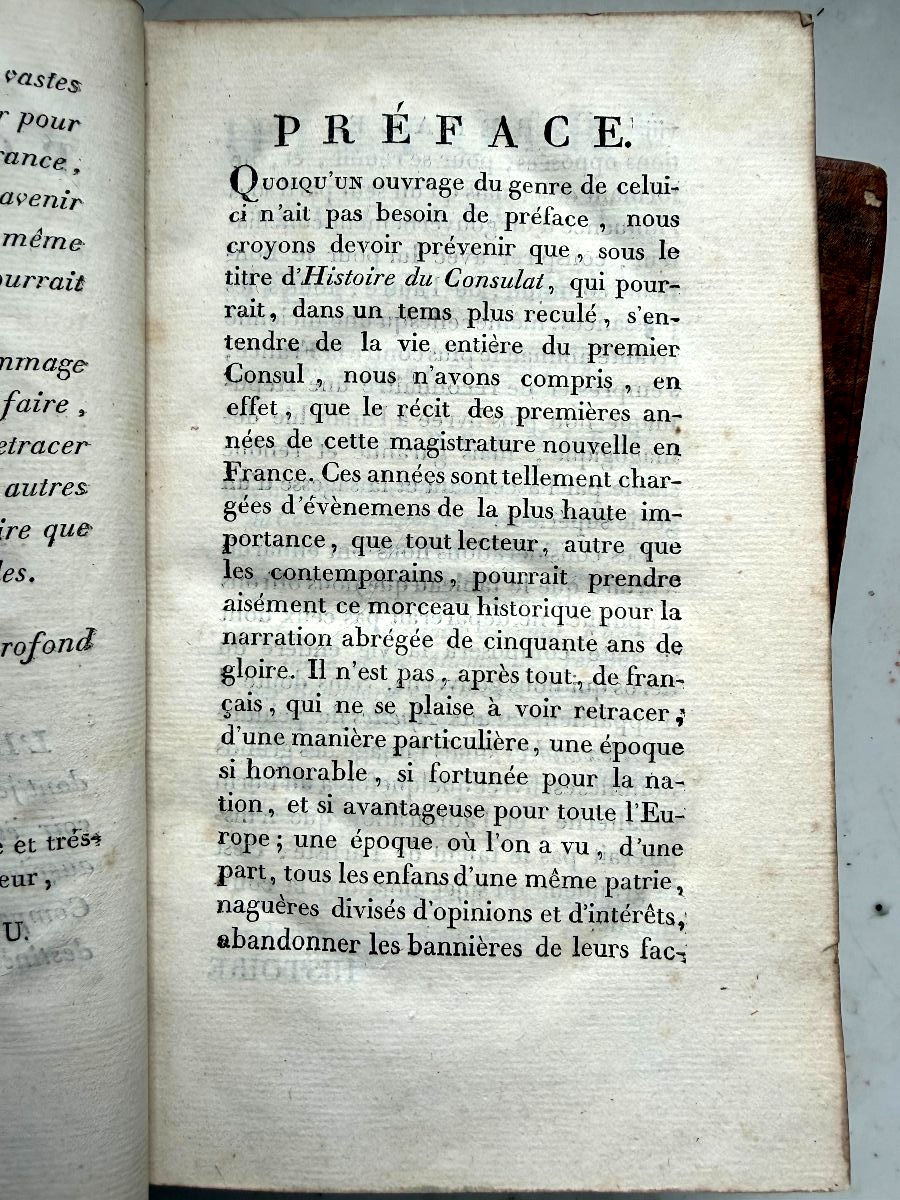 vastes
pour
rance,
avenir
même
ourrait
mmage
faire,
etracer
autres
ire que
les.
rofond
et trés-
eur,
U.
PRÉFACE.
QUOIQU'UN ouvrage du genre de celui-
ci n'ait pas besoin de préface, nous
croyons devoir prévenir que, sous le
titre d'Histoire du Consulat, qui pour-
rait, dans un tems plus reculé, s'en-
tendre de la vie entière du premier
Consul, nous n'avons compris, en
effet, que le récit des premières an-
nées de cette magistrature nouvelle en
France. Ces années sont tellement char-
gées d'évènemens de la plus haute im-
portance, que tout lecteur, autre que
les contemporains, pourrait prendre
aisément ce morceau historique pour la
narration abrégée de cinquante ans de
gloire. Il n'est pas, après tout, de fran-
çais, qui ne se plaise à voir retracer,
d'une manière particulière, une époque
si honorable, si fortunée pour la na-
tion, et si avantageuse pour toute l'Eu-
rope; une époque où l'on a vu, d'une
part, tous les enfans d'une même patrie,
naguères divisés d'opinions et d'intérêts,
abandonner les bannières de leurs fac-